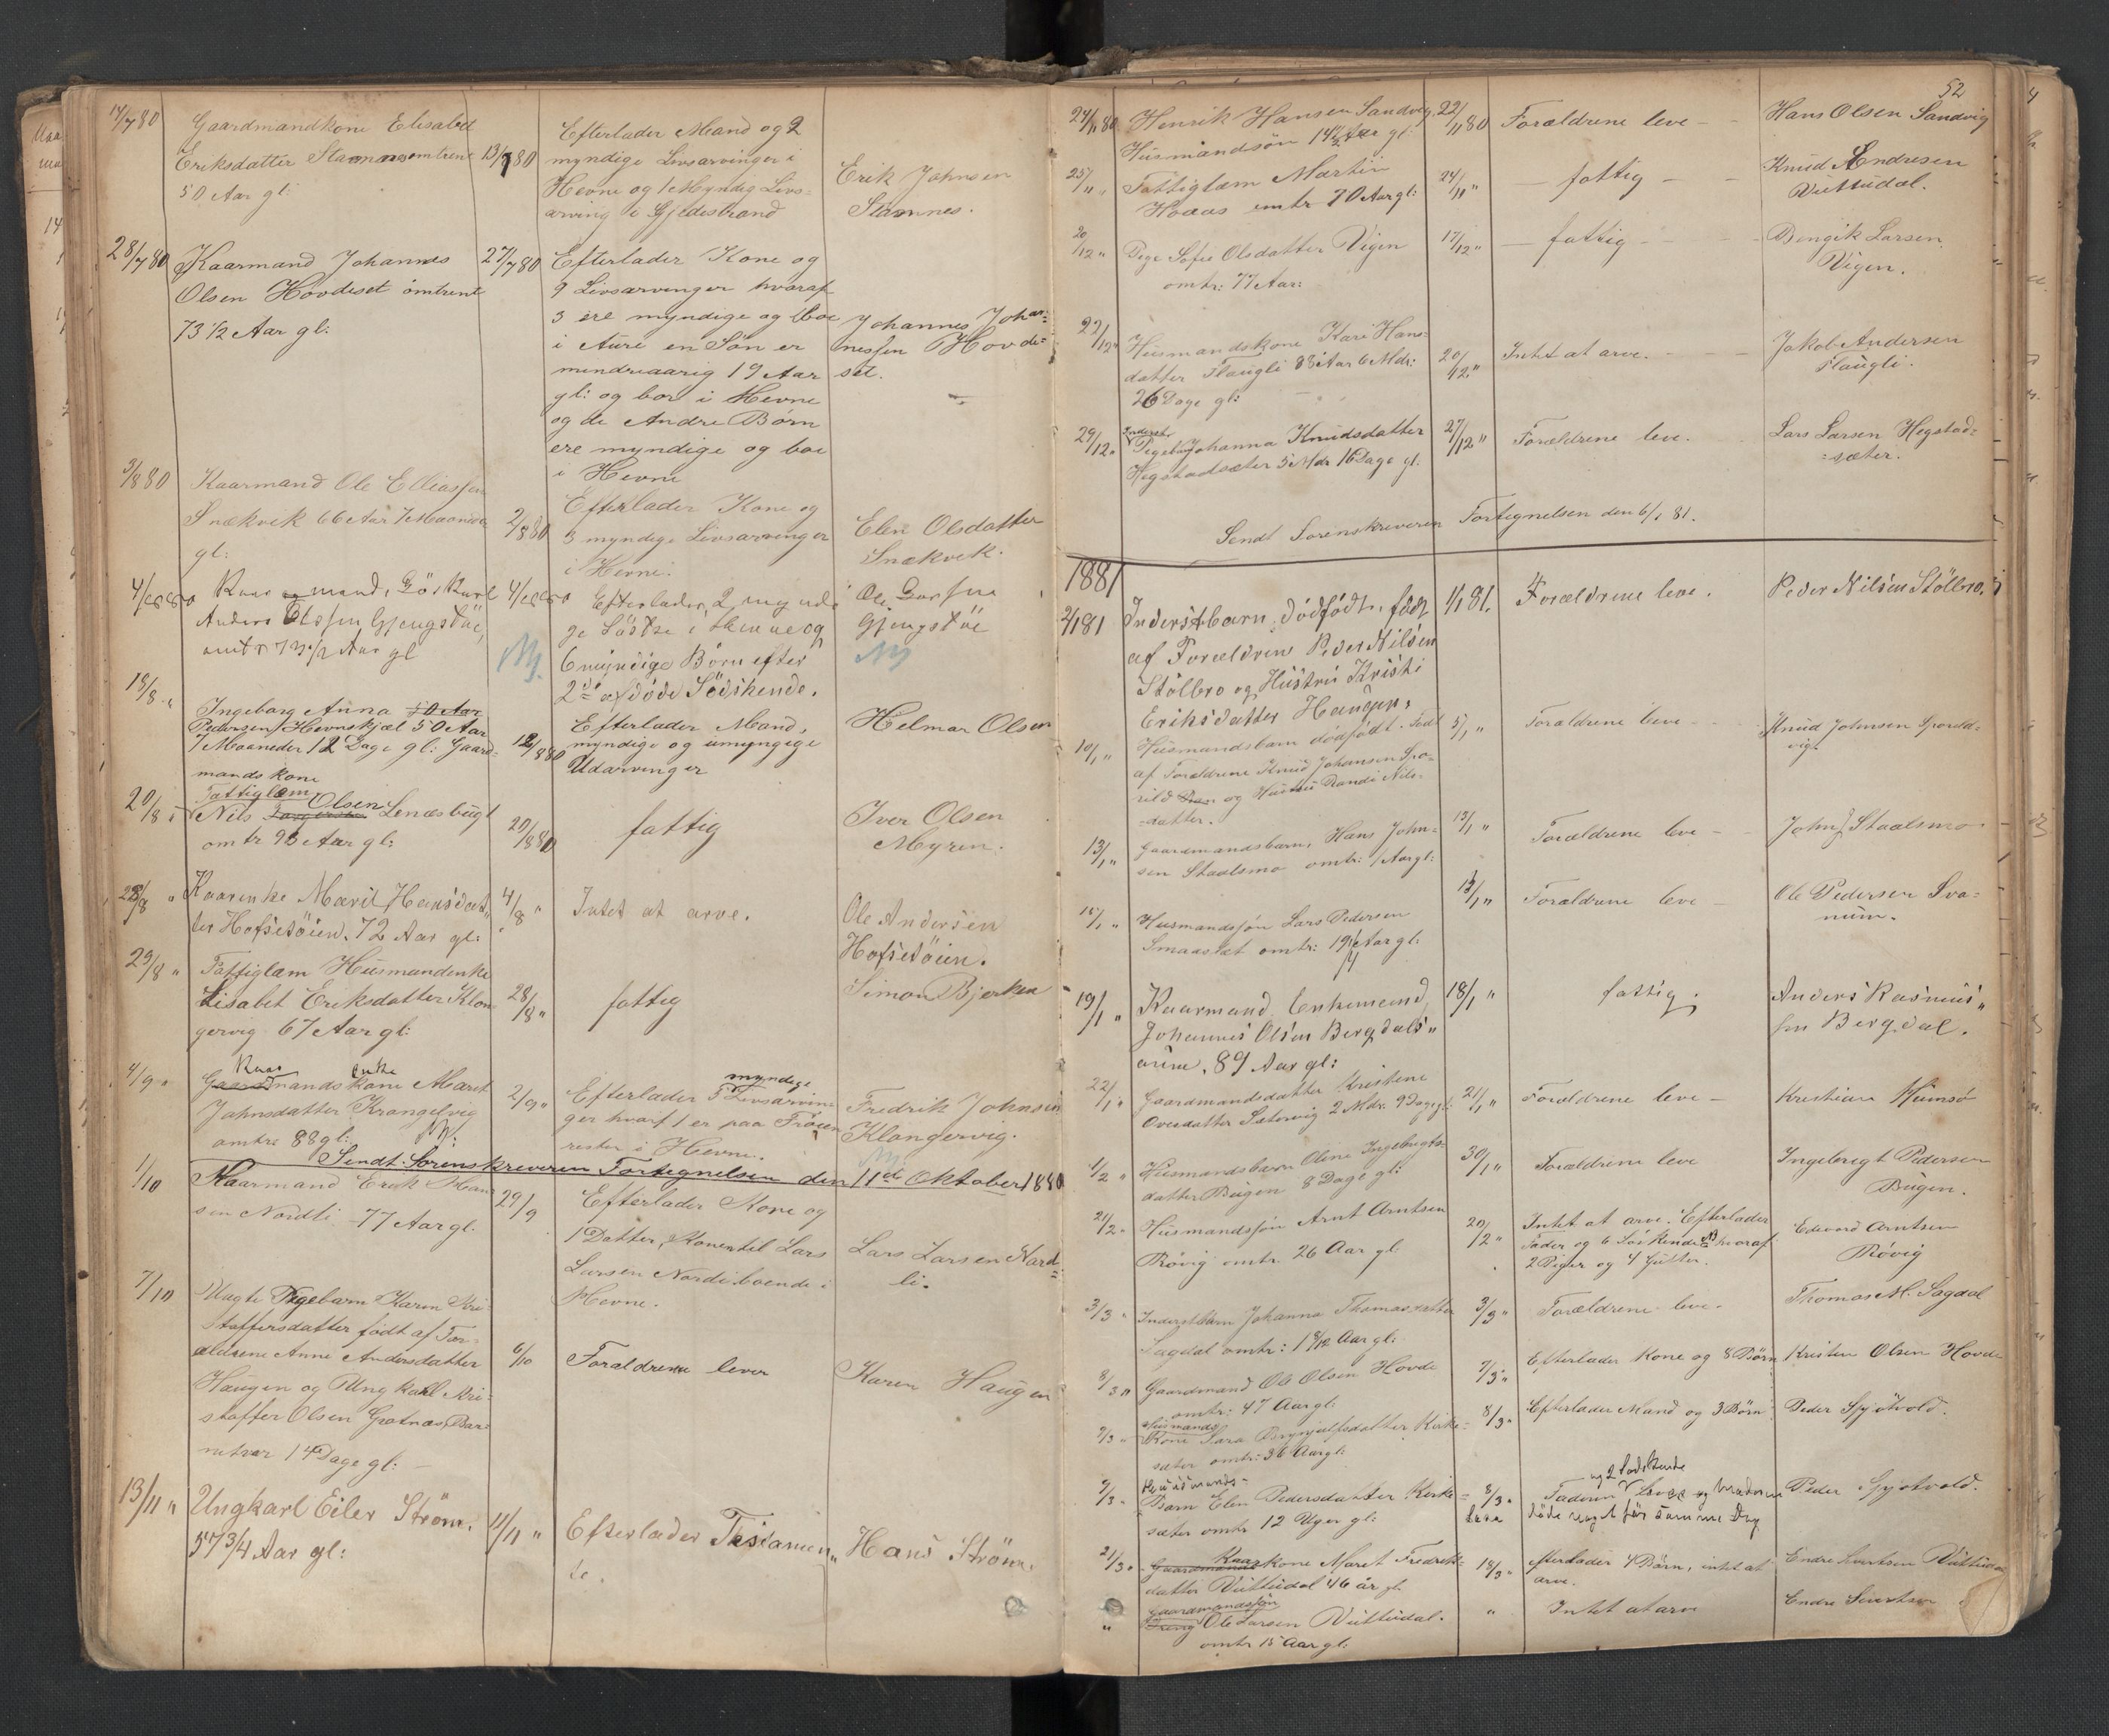 17/7 80
Gaardmandkone Elisabed
Eriksdatter Stamnes omtrent
50 Aar gl:
13/7 80
Efterlader Mand og 2
myndige Livsarvinger i
Hevne og 1 Myndig Livs-
arving i Gjeldestrand
Erik Johnsen
Stamnes.
28/7 80
Kaarmand Johannes
Olsen Hovdeset omtrent
73 1/2 Aar gl:
27/7 80
Efterlader Kone og
9 Livsarvinger hvoraf
3 ere myndige og boe
i Aure en Søn er
mindreaarig 19 Aar
gl: og bor i Hevne
og de Andre Børn
ere myndige og boe
i Hevne
Johannes Johan-
nessen Hovde-
set.
3/8 80
Kaarmand Ole Elliassen
Snækvik 66 Aar 7 Maaneder
gl:
2/8 80
Efterlader Kone og
3 myndige Livsarvinger
i Hevne.
Elen Olsdatter
Snekvik.
4/8 80
Kaarmand, Løskarl
Anders Olssen Gjengstøe,
omtr 73 1/2 Aar gl
4/8 80
Efterlader, 2 myndi
ge Søstre i Hevne og
6 myndige Børn efter
2de afdøde Södskende.
Ole Larsen
Gjengstøe
18/8 "
Ingeborg Anna 50 Aar
Pedersen Hevnskjæl 50 Aar
7 Maaneder 12 Dage gl: Gaard-
mandskone
12/8 80
Efterlader Mand,
myndige og umyngige
Udarvinger
Helmar Olsen
20/8 "
Fattiglem
Nils Olsen Lenæsbugt
omtr 93 Aar gl:
20/8 80
fattig
Iver Olsen
Myren.
28/8 "
Kaarenke Marit Hansdat-
ter Hofsetøien. 72 Aar gl:
4/8 "
Intet at arve.
Ole Andersen
Hofsetøien.
29/8 "
Fattiglem Husmandenke
Lisabet Eriksdatter Klon
gervig 67 Aar gl:
28/8 "
fattig
Simon Bjerken
4/9 "
Kaar enke
Gaardmandskone Maret
Johnsdatter Krongelvig
omtre 88 gl:
2/9 "
myndige
Efterlader 5 Livsarvin-
ger hvoraf 1 er paa Frøien
resten i Hevne.
Fredrik Johnsen
Klongervig.
Sendt Sorenskriveren Fortegnelsen den 11te Oktober 1880
1/10
Kaarmand Erik Han
sen Nordli 77 Aar gl.
29/9
Efterlader Kone og
1 Datter, Konen til Lars
Larsen Nordli boende i
Hevne.
Lars Larsen Nord-
li.
7/10
Uægte Pigebarn Karen Kri-
stoffersdatter født af For-
ældrene Anne Andersdatter
Haugen og Ungkarl Kri-
stoffer Olsen Grotnæs, Bar-
net var 14 Dage gl:
6/10
Forældrene lever
Karen Haugen
13/11 "
Ungkarl Eiler Strøm.
57 3/4 Aar gl:
11/11 "
Efterlader Testamen„
te.
Hans Strøm.
52
24/11 80
Henrik Hansen Sandvig
Husmandsøn 14 1/2 Aar gl:
22/11 80
Forældrene leve
Hans Olsen Sandvig
25/11 "
Fattiglem Martin
Hoaas omtr 70 Aar gl:
24/11 "
fattig
Knud Andresen
Vuttudal.
20/12 "
Pige Sofie Olsdatter Vigen
omtr: 77 Aar:
17/12 "
fattig
Bengik Larsen
Vigen.
22/12 "
Husmandskone Kari Hans-
datter Flaugli 88 Aar 6 Mdr:
26 Dage gl:
20/12 "
Intet at arve.
Jakob Andersen
Flaugli.
29/12 "
Inderst
Pigebarn Johanna Knudsdatter
Hegstadsæter 5 Mdr 16 Dage gl.
27/12 "
Forældrene leve.
Lars Larsen Hegstad-
sæter.
Sendt Sorenskriveren Fortegnelsen den 6/1 81.
1881
2/1 81
Inderstbarn, dødfødt, født
af Forældrene Peder Nilsen
Stölbro og Hustru Kristi
Eriksdatter Haugen.
1/1 81.
Forældrene leve.
Peder Nilsen Stölbro.
10/1 "
Husmandsbarn dødfødt. Født
af Forældrene Knud Johansen Spo-
rild og Hustru Randi Nils-
datter.
5/1 "
Forældrene leve
Knud Johnsen Sporild-
vig
13/1 "
Gaardmandsbarn, Hans John-
sen Staalsmo omtr: 1 Aar gl:
13/1 "
Forældrene leve
John J Staalsmo
15/1 "
Husmandssøn Lars Pedersen
Smaaslæt omtr: 19 1/4 Aar gl:
13/1 "
Forældrene leve
Ole Pedersen Sva-
num.
19/1 "
Kaarmand Enkemand,
Johannes Olsen Bergdals„
øien, 89 Aar gl:
18/1 "
fattig.
Anders Rasmus„
sen Bergdal.
22/1 "
Gaardmandsdatter Kristine
Ovesdatter Sætervig 2 Mdr. 9 Dage gl:
21/1 "
Forældrene leve
Kristian Humsø
1/2 "
Husmandsbarn Oline Ingebrigts-
datter Bugen 8 Dage gl:
30/1 "
Forældrene leve
Ingebrigt Pedersen
Bugen.
21/2 "
Husmandssøn Arnt Arntsen
Røvig omtr. 26 Aar gl:
20/2 "
Intet at arve. Efterlader
Fader og 6 Søskende hvoraf
2 Piger og 4 Gutter.
Edvard Arntsen
Røvig
3/3 "
Inderstbarn Johanna Thomasdatter
Sagdal omtr: 1 8/12 Aar gl:
3/3 "
Forældrene leve.
Thomas M. Sagdal
8/3 "
Gaardmand Ole Olsen Hovde
omtr: 47 Aar gl:
7/3 "
Efterlader Kone og 8 Børn
Kristen Olsen Hovde
9/3 "
Husmands
Kone Sara Brynjulfsdatter Kirke-
sæter omtr: 36 Aar gl:
8/3 "
Efterlader Mand og 3 Børn
Peder Spjøtvold.
9/3 "
Husmands-
Barn Elen Pedersdatter Kirke-
sæter omtr 12 Uger gl:
8/3 "
og 2 Södskende
Faderen Lever og Moderen
døde noget før samme Dag
Peder Spjøtvold.
21/3 "
Kaarkone Maret Fredrik-
datter Vuttudal 46 år gl.
18/3 "
Efterlader 4 Børn, intet at
arve.
Endre Sivertsen Vuttudal
"
Gaardmandssøn
Dreng Ole Larsen Vuttudal.
omtr 15 Aar gl:
"
Intet at arve
Endre Sivertsen